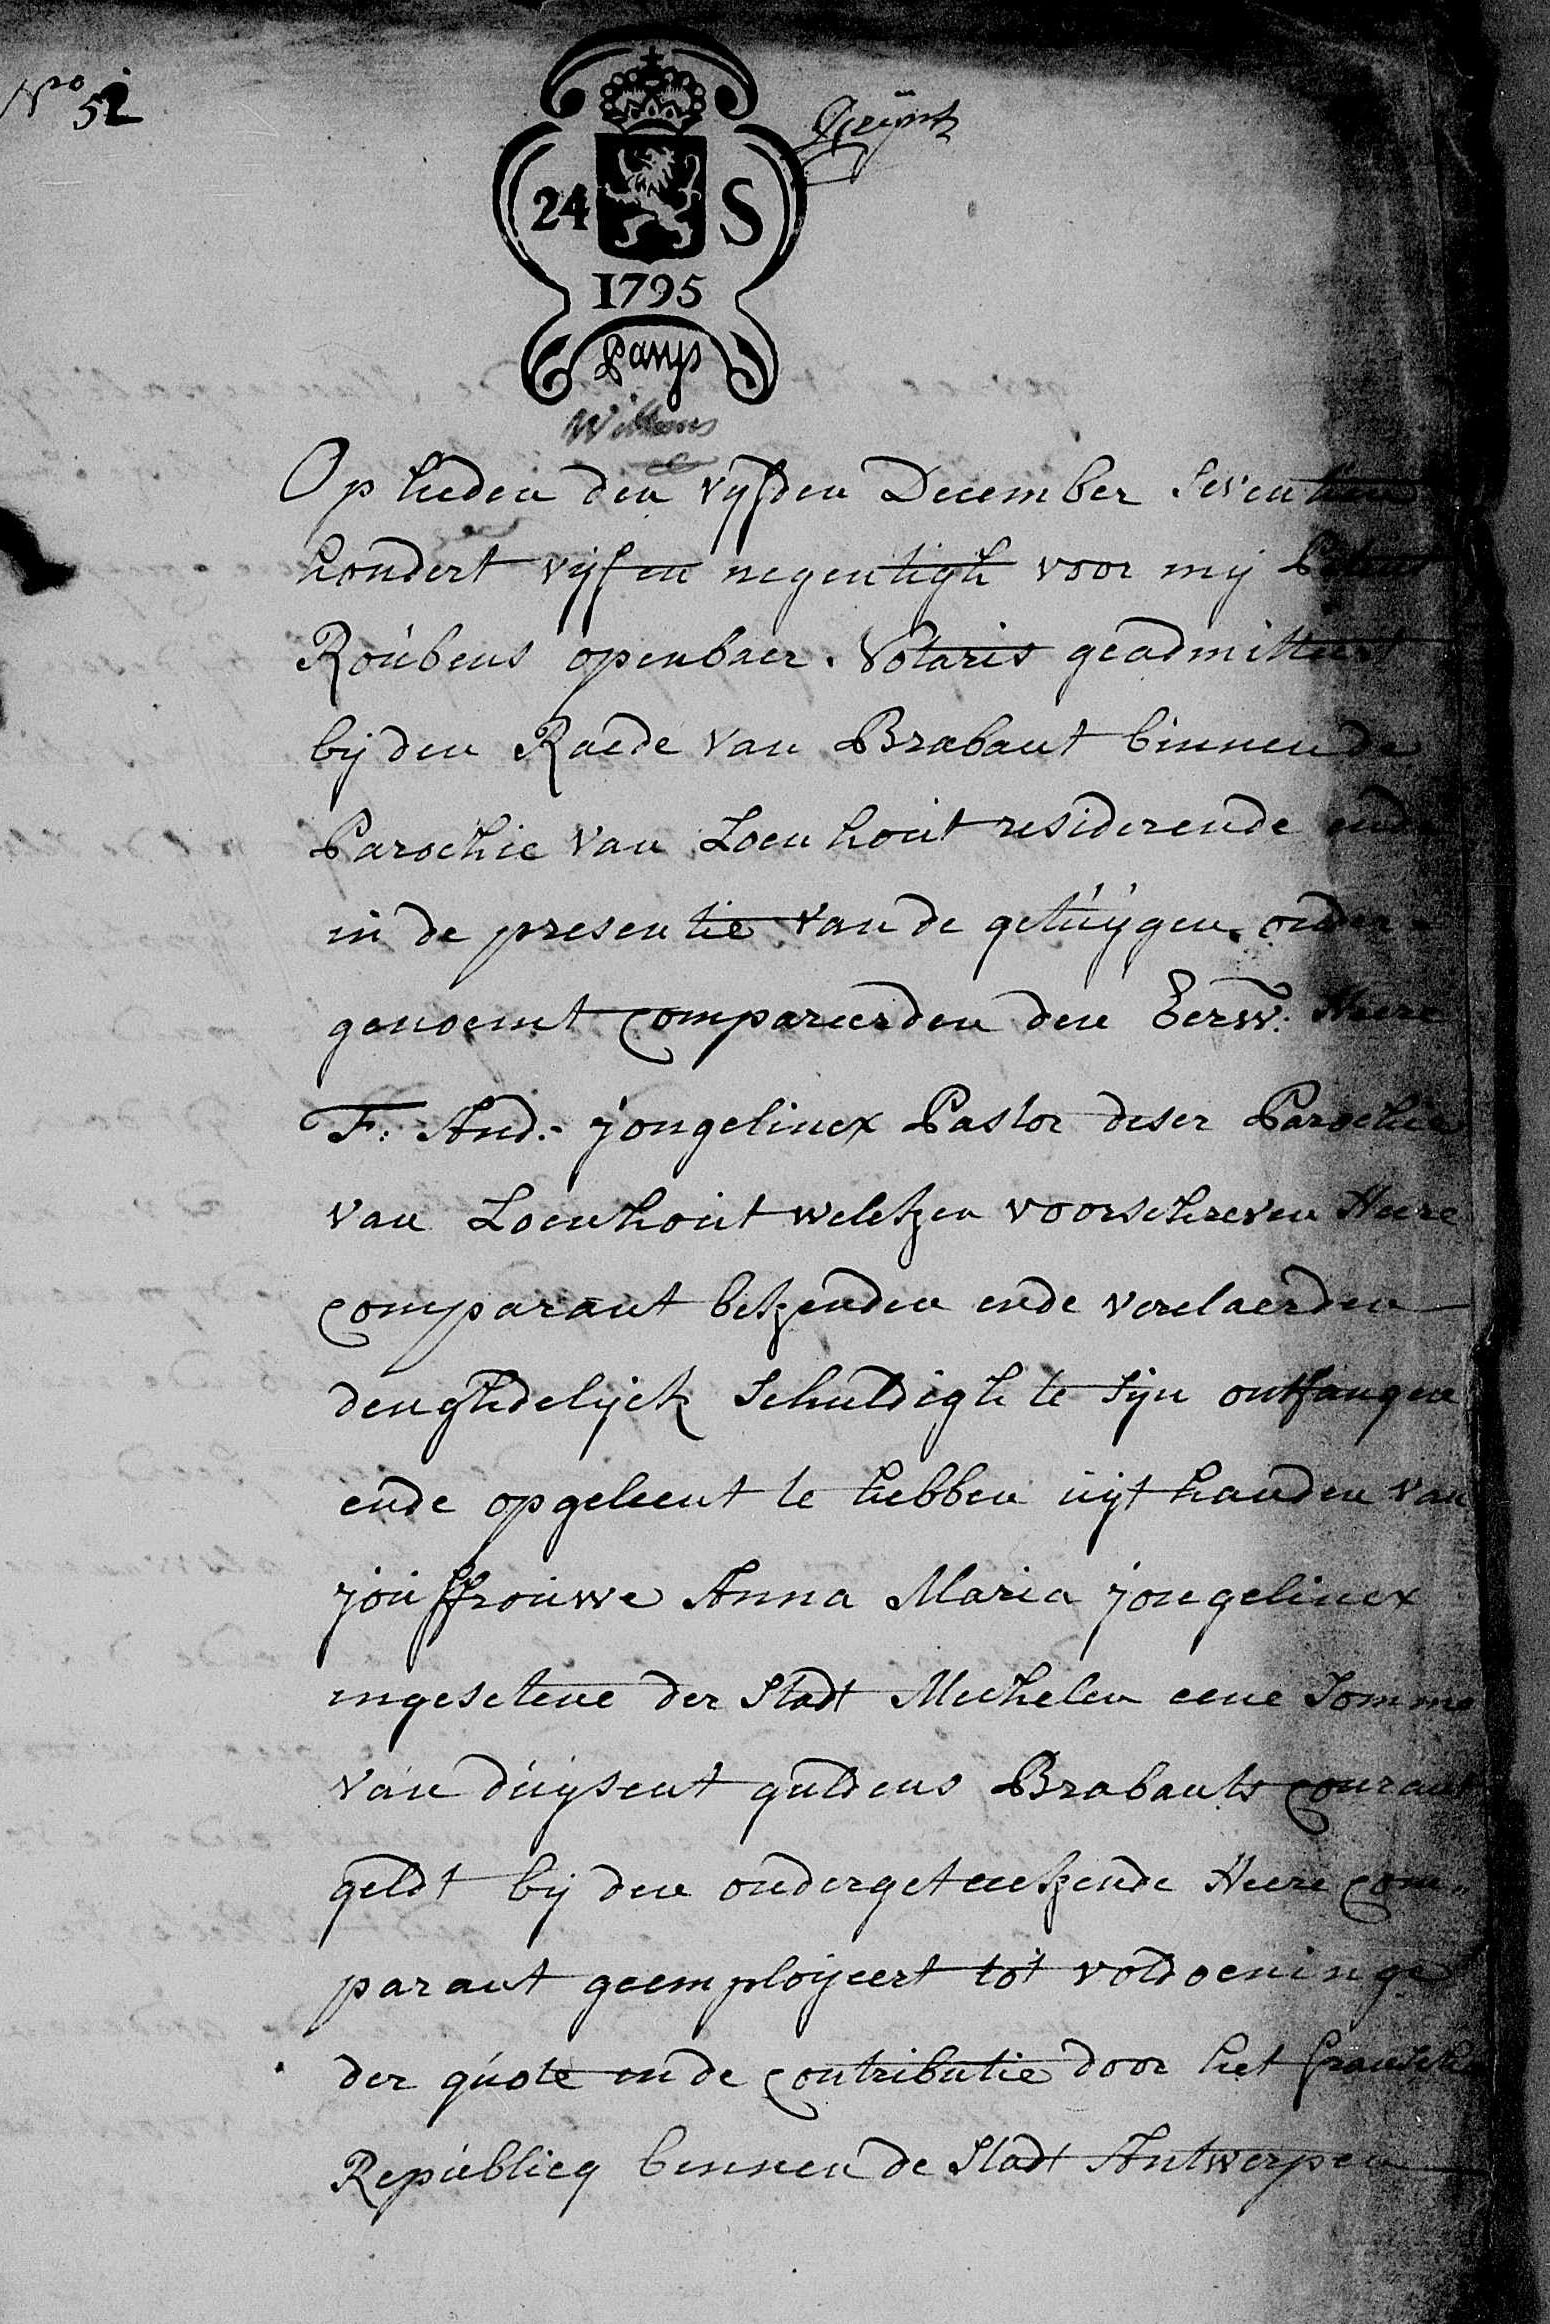 Nro 52
24 S
1795
Parys
Willems
Op heden den vyfden December seventhien
hondert vijf en negentigh voor mij Petrus
Roúbens openbaer Notaris geadmitteert
bij den Raede van Brabant binnen de
Parochie van Loenhoút residerende ende
in de presentie van de getúÿgen onder-
genoemt compareerden den Eerw: Heere
F: And: jongelincx Pastor deser Parochie
van Loenhoút welcken voorschreven Heere
comparant bekenden ende verclaerden
deughdelijck schuldigh te sijn ontfangen
ende opgeleent te hebben úijt handen van
joúffroúwe Anna Maria jongelincx
ingesetene der Stadt Mechelen eene Somme
van dúijsent guldens Brabants courant
geldt bij den ondergeteekende Heere com-
parant geemploijeert tot voldoeninge
der qúote in de contributie door het fransche
Repúblicq binnen de Stadt Antwerpen